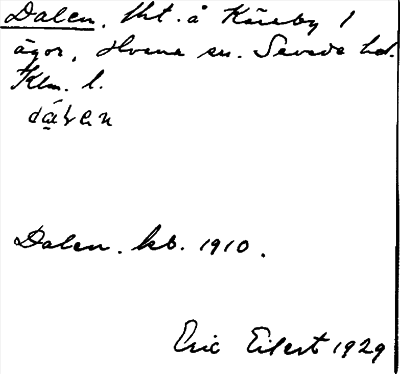 Dalen, tht. å Kåreby 1
ägor, Hvena sn. Sevede hd.
Klm. l.
dɑ́ƚen
Dalen. kb. 1910.
Eric Eilert 1929